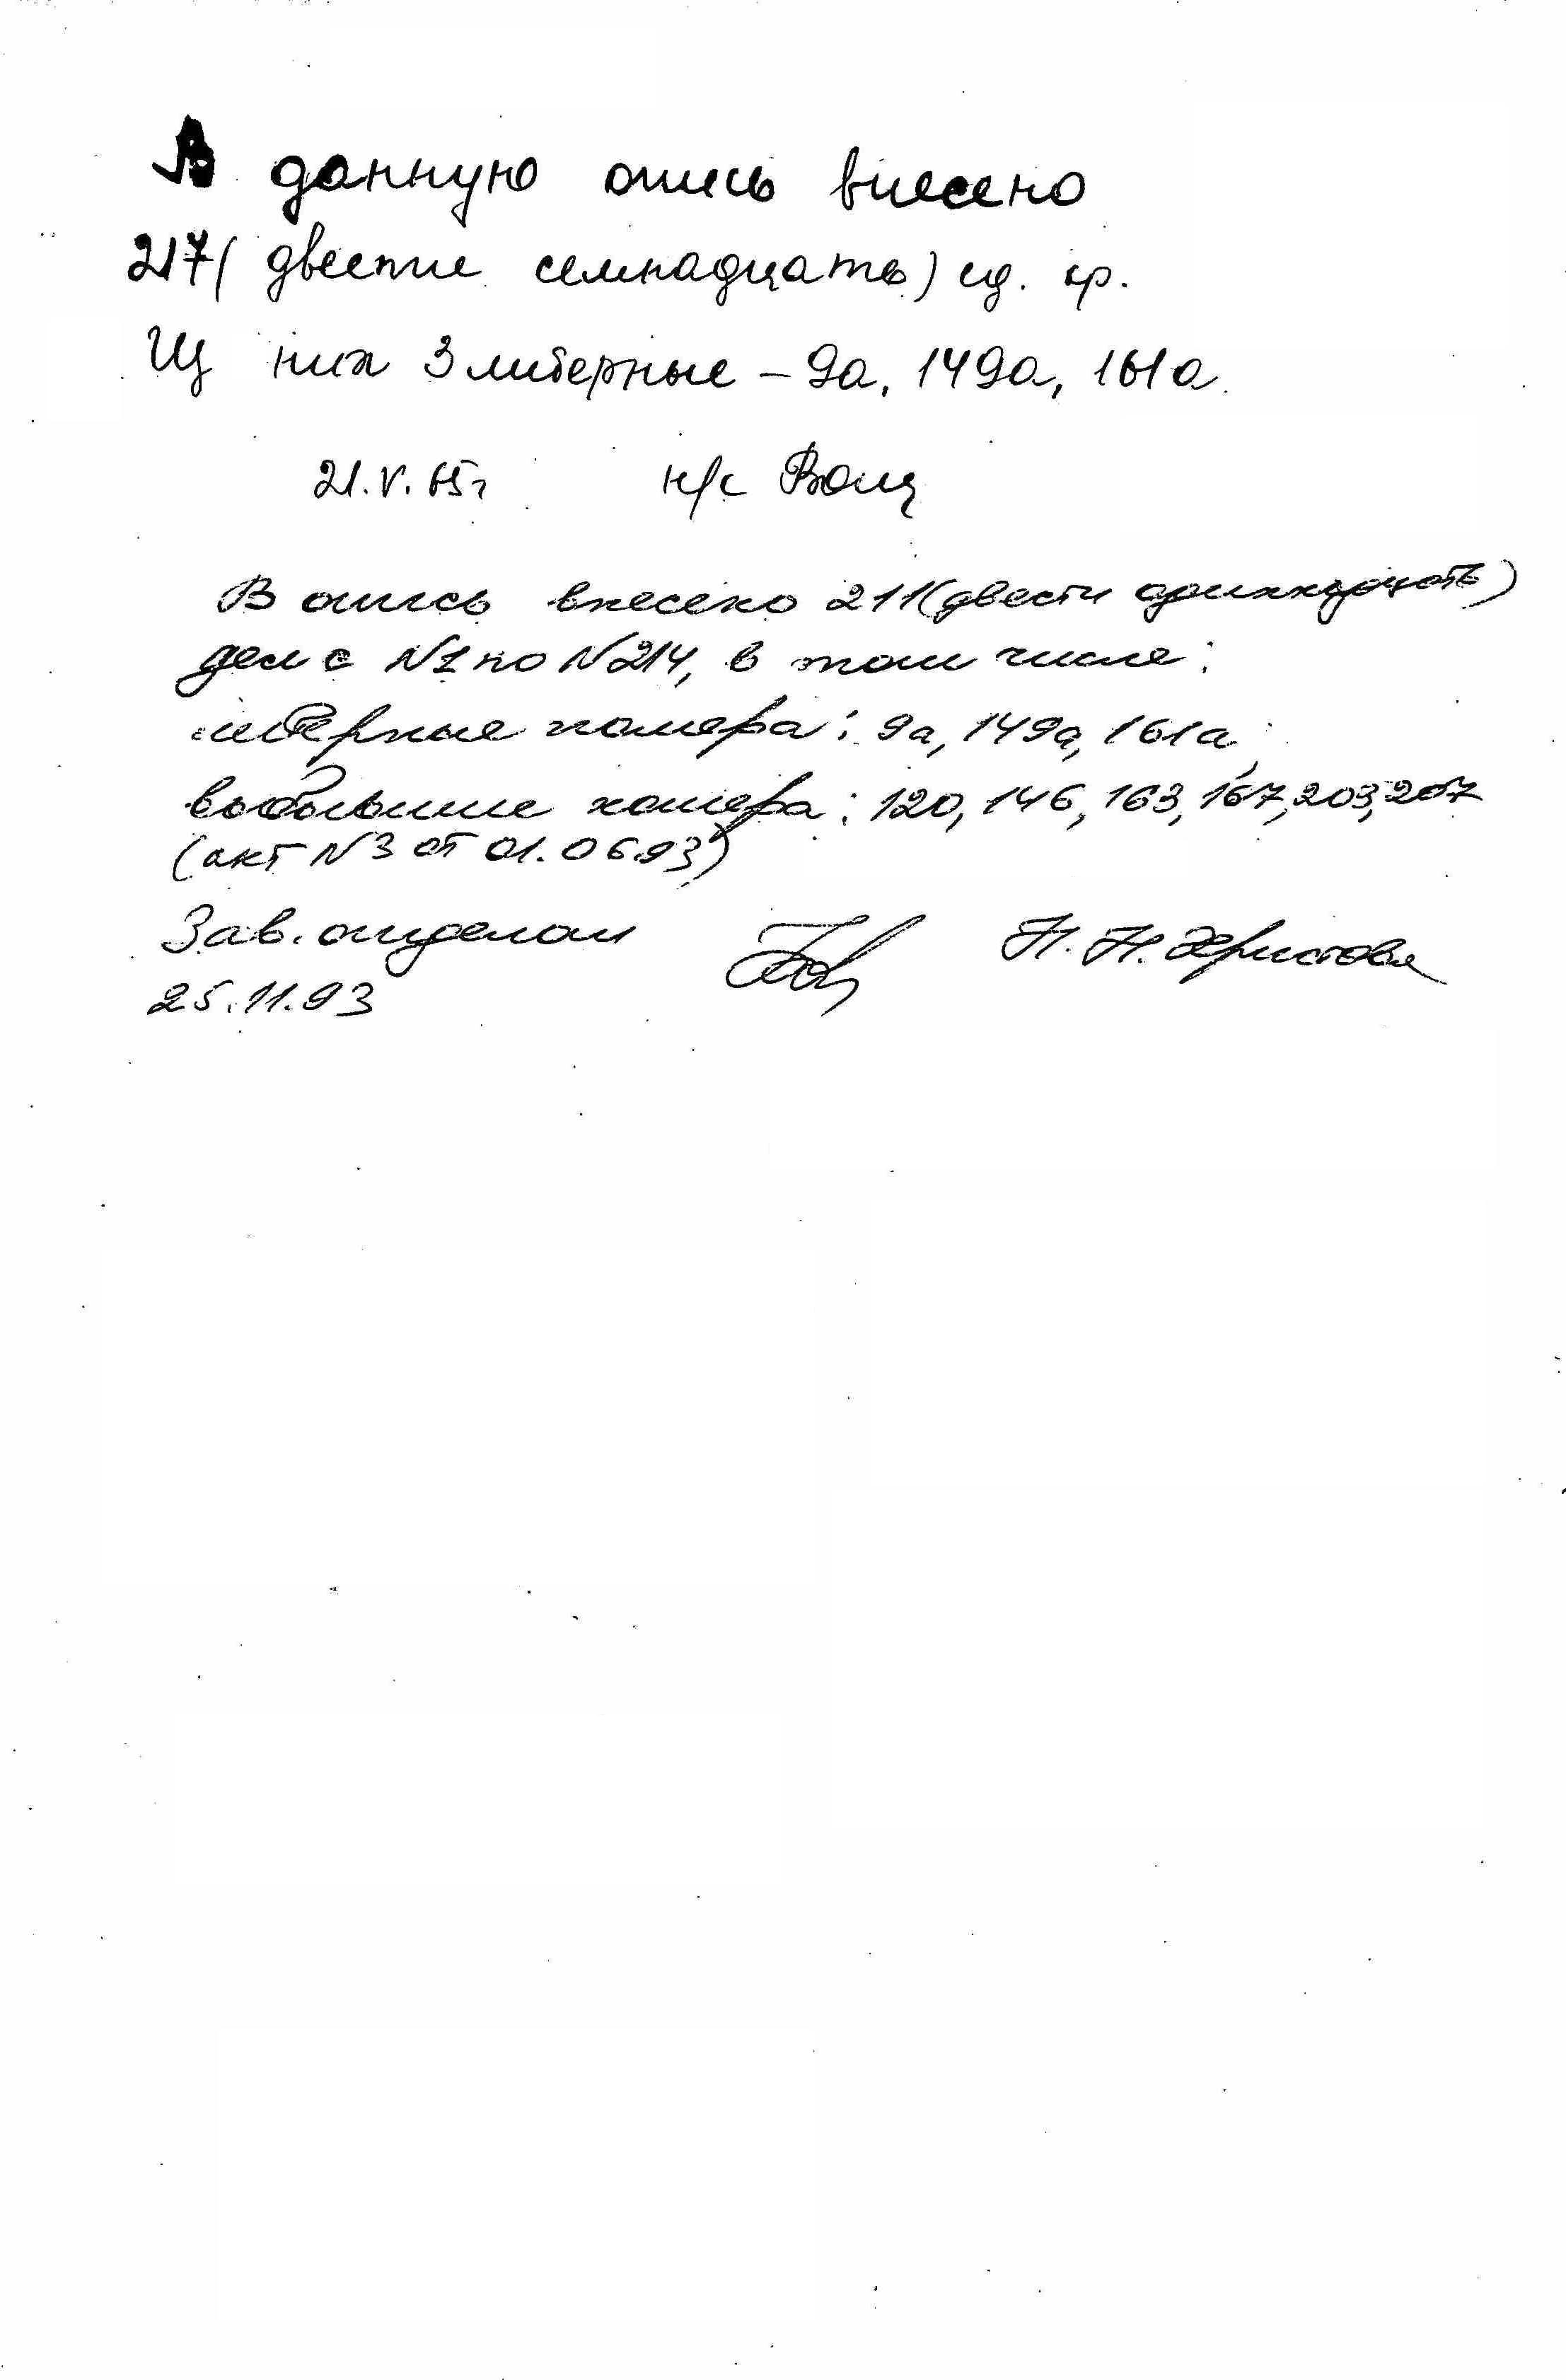 В данную опись внесено
217 (двести семнадцать) ед. хр.
Из них 3 литерные – 9а, 149а, 161а
21.V.65г н/с
В опись внесено 211 (двести одиннадцать)
дел с N1 по N214, в том числе:
литерные номера: 9а, 149а, 161а;
выбывшие номера: 120, 146, 163, 167, 203, 207
(акт N3 от 01.06.93)
Зав. отделом Н.Н. Христова
25.11.93